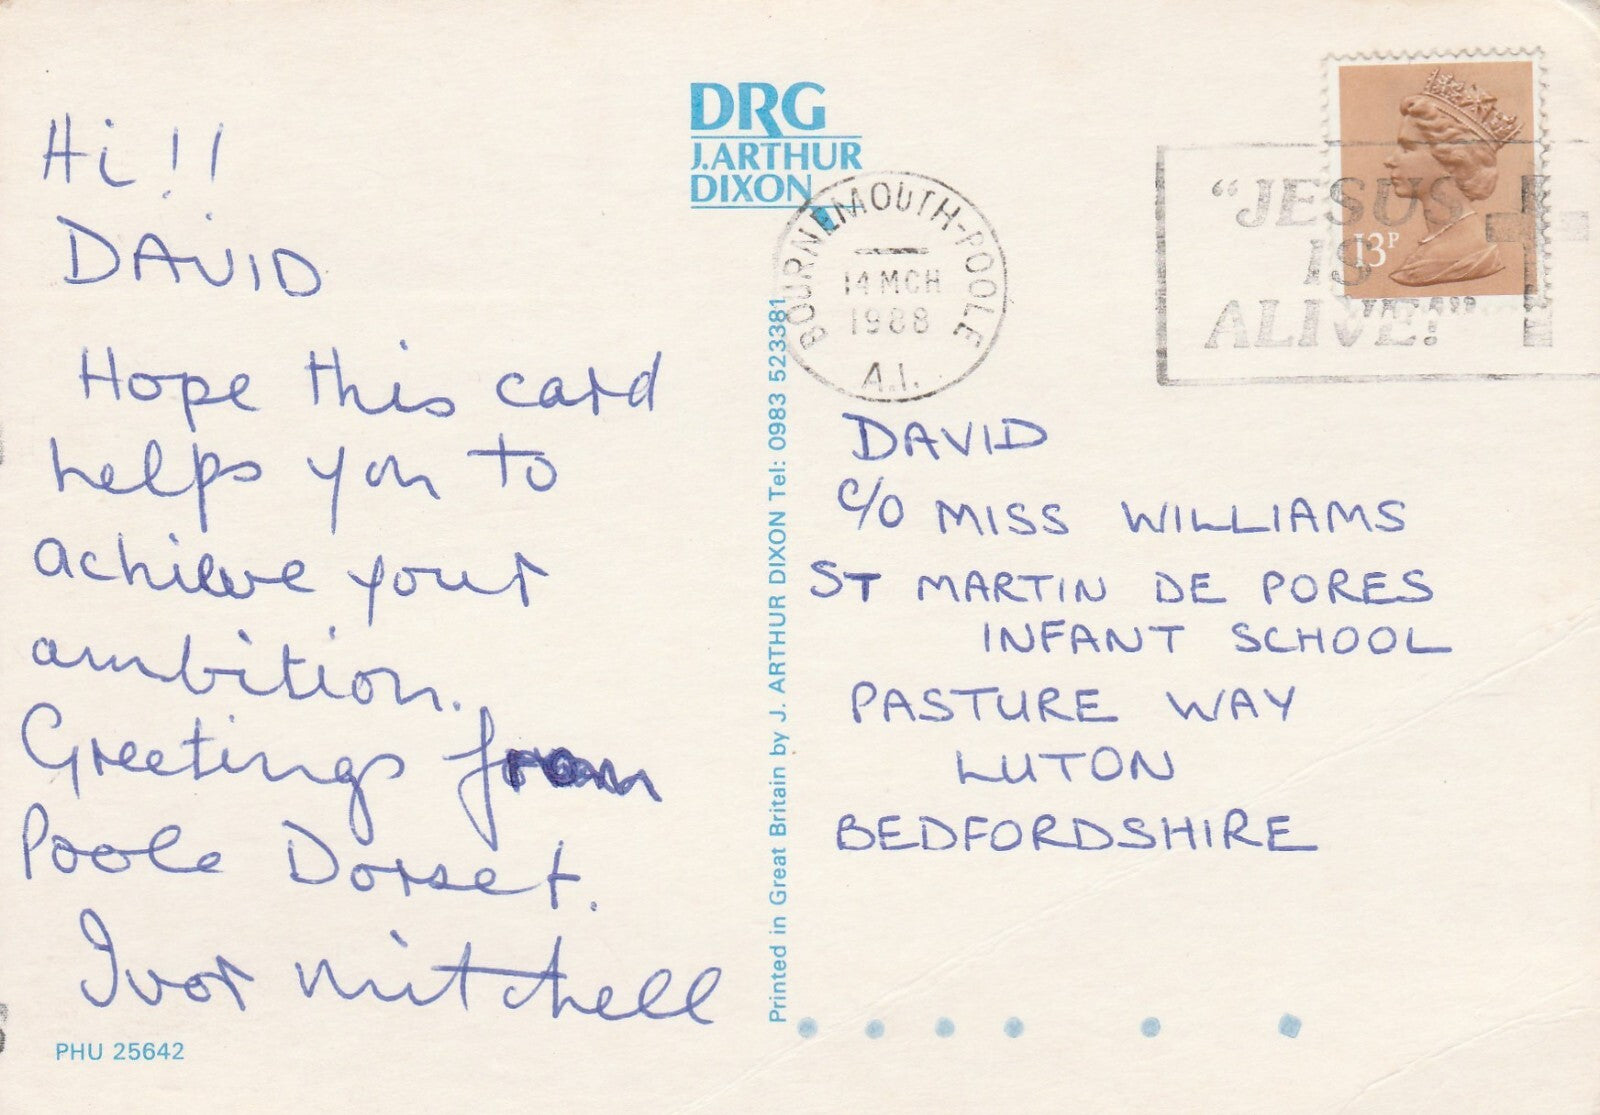 Hi!!
DAVID
Hope this card
helps you to
achieve your
ambition.
Greetings from
Poole Dorset.
Ivor Mitchell
PHU 25642
DRG
J.ARTHUR
DIXON
Printed in Great Britain by J. ARTHUR DIXON Tel: 0983 523381
BOURNEMOUTH-POOLE
14 MCH
1988
A.I.
"JESUS
IS
ALIVE!"
13P
DAVID
c/o MISS WILLIAMS
ST MARTIN DE PORES
INFANT SCHOOL
PASTURE WAY
LUTON
BEDFORDSHIRE